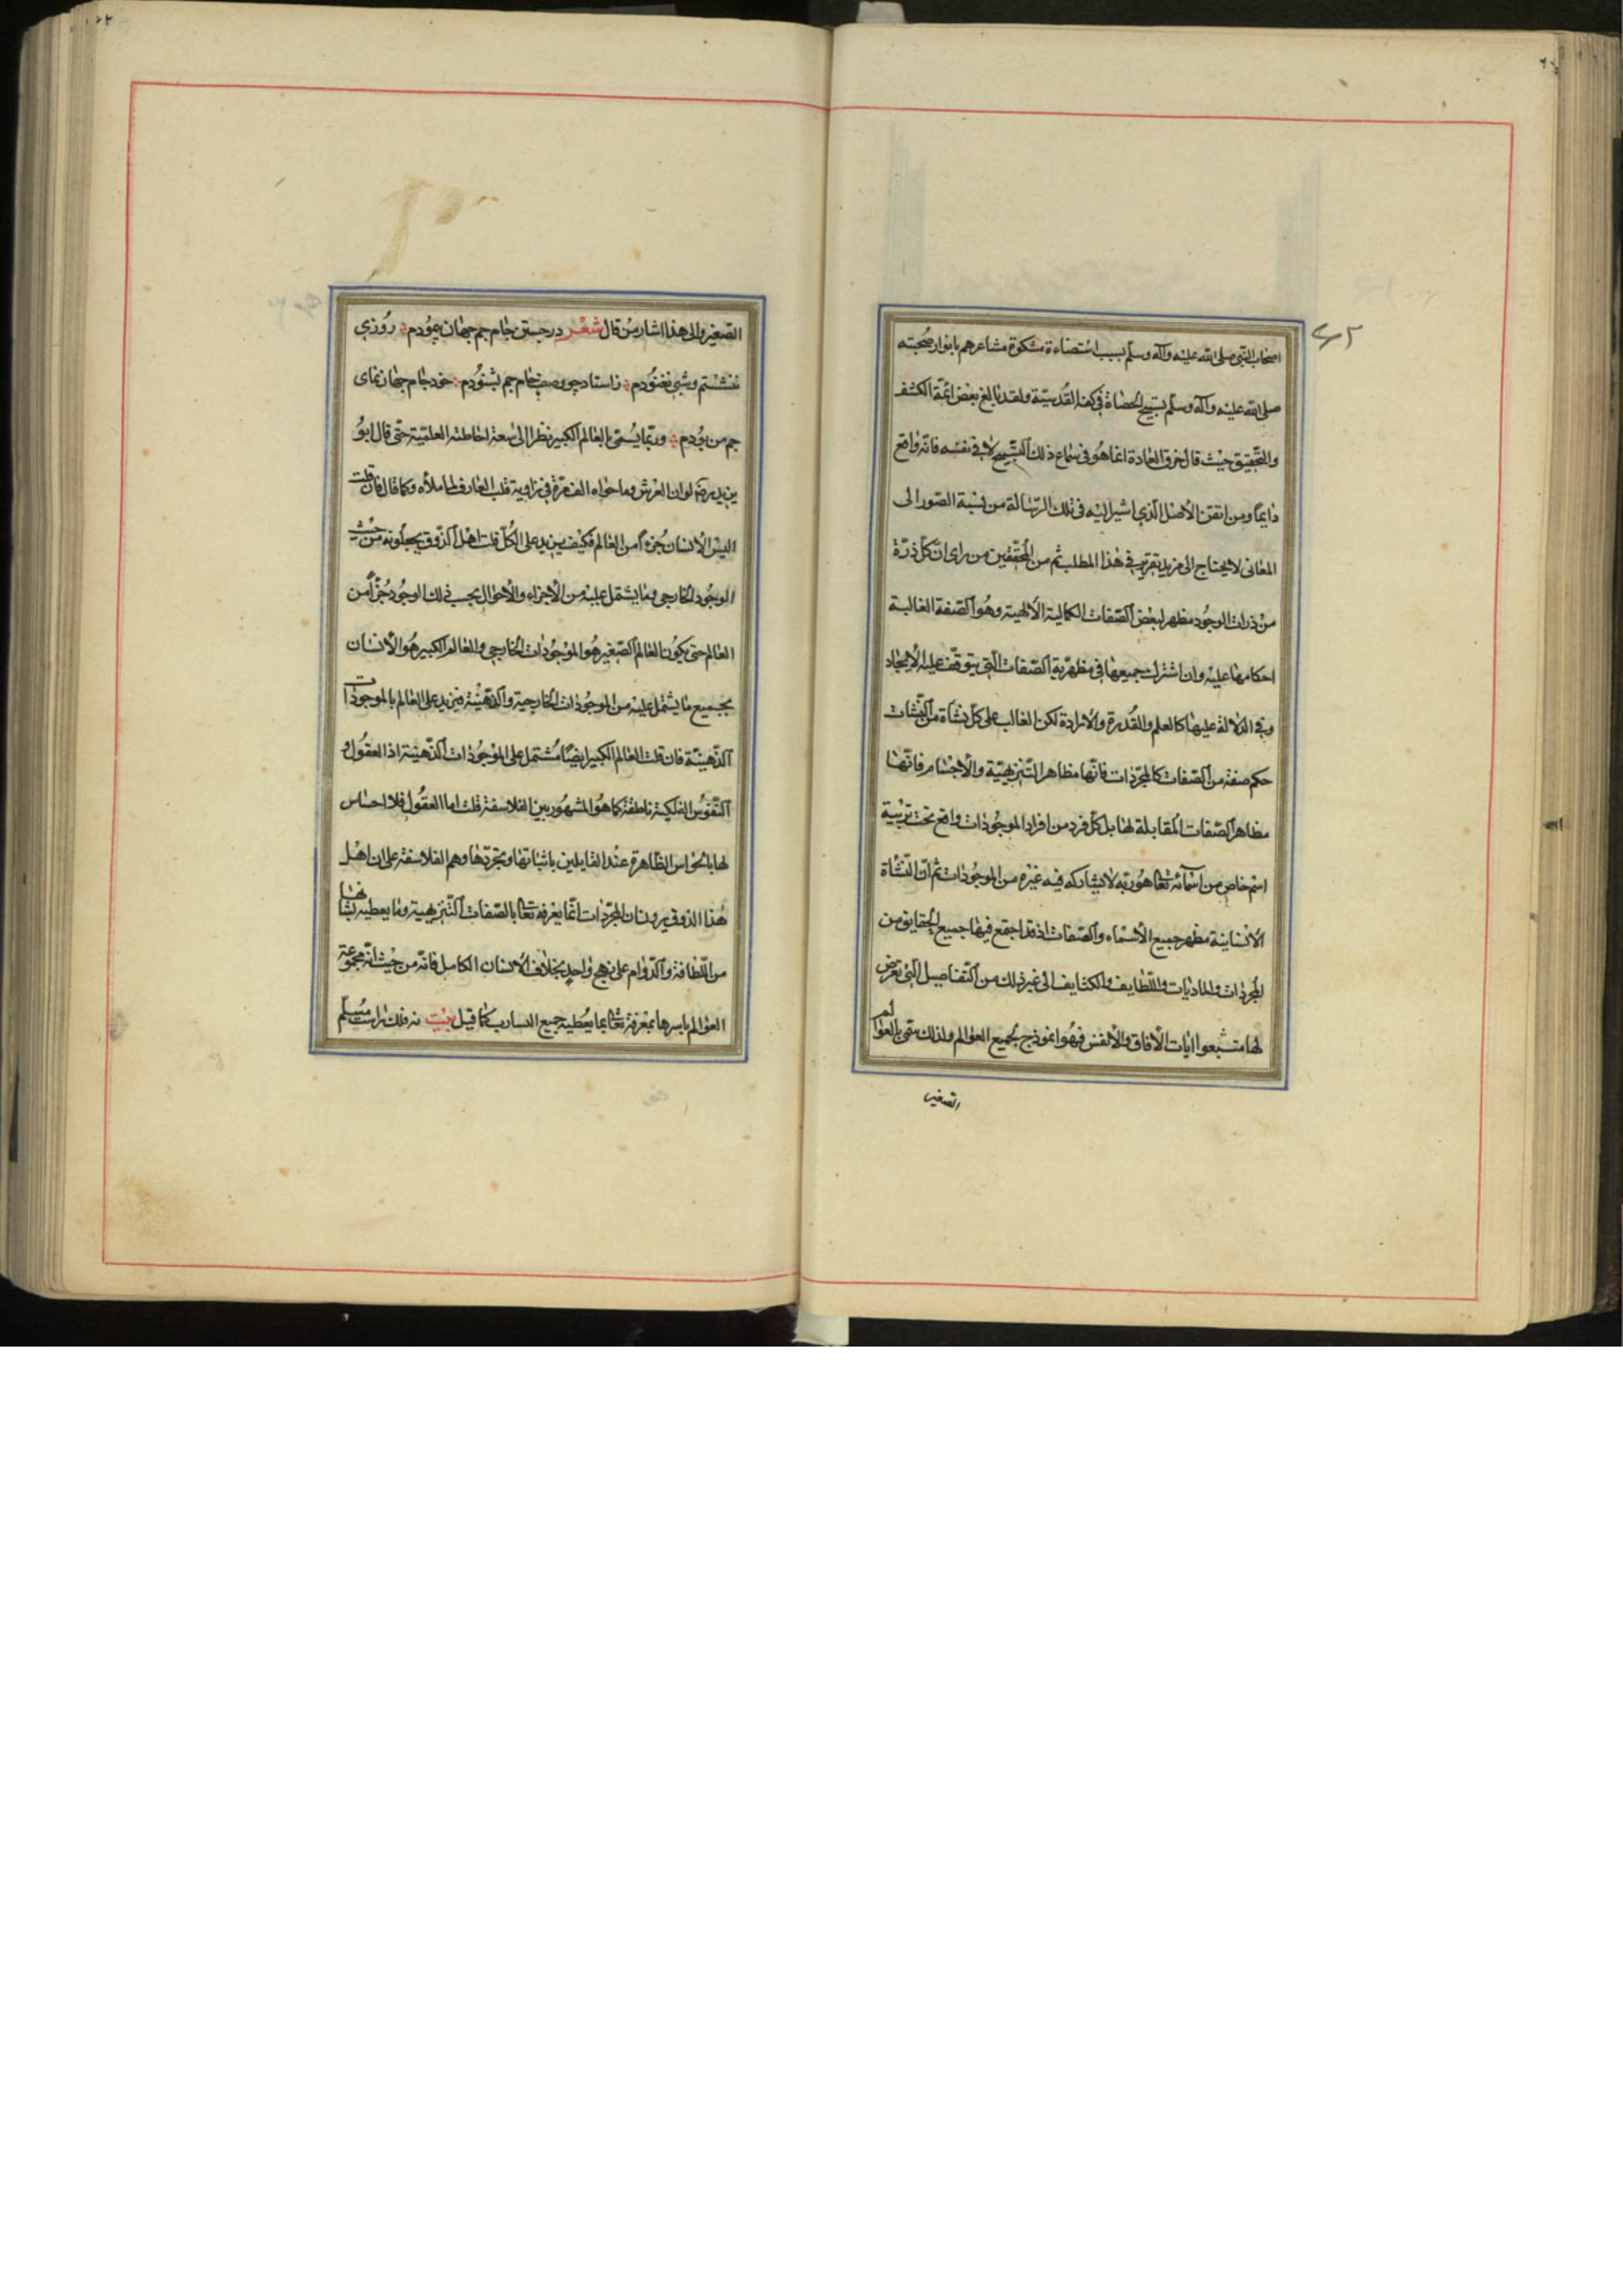 اصحاب النبی صلی الله علیه وآله وسلم بسبب استضاءة مشکوة مشاعرهم بانوار صحبته
صلی الله علیه وآله وسلم تسبیح الحصاة فی کفه القدسیة ولقد بالغ بعض ائمة الکشف
والتحقیق حیث قال خرق العادة انما هو فی سماع ذلک التسبیح لا فی نفسه فانه واقع
دایما ومن اتقن الأصل الذی اشیر الیه فی تلک الرسالة من نسبة الصور الی
المعانی لا یحتاج الی مزید تقریر فی هذا المطلب ثم من المحققین من رای ان کل ذرة
من ذرات الوجود مظهر لبعض الصفات الکمالیة الألهیة وهو الصفة الغالبة
احکامها علیه وان اشترک جمیعها فی مظهریة الصفات التی یتوقف علیه الایجاد
وفی الدلالة علیها کالعلم والقدرة والارادة لکن الغالب علی کل نشأة من النشات
حکم صفة من الصفات کالمجردات فانها مظاهر التنزیهیة والأجسام فانها
مظاهر الصفات المقابلة لها بل کل فرد من افراد الموجودات واقع تحت تربیة
اسم خاص من اسمائه تعا هو ربه لا یشارکه فیه غیره من الموجودات ثم ان النشاة
الانسانیة مظهر جمیع الأسماء والصفات اذ قد اجتمع فیها جمیع الحقایق من
المجردات والمادیات واللطایف والکثایف الی غیر ذلک من التفاصیل التی تعرض
لها متتبعوا ایات الآفاق والأنفس فهو انموذج لجمیع العوالم ولذلک سمی بالعوالم
الصغیر
الصغیر والی هذا اشار من قال شعر در جستن جام جم جهان پیمودم روزی
ننشستم وشبی نغنودم ز استاد چو وصف جام جم بشنودم خود جام جهان نمای
جم من بودم وربما یسمی بالعالم الکبیر نظرا الی سعة احاطته العلمیة حتی قال ابو
یزید رض لو ان العرش وما حواه الف مرة فی زاویة قلب العارف لما ملأه وکما قال فان قلت
الیس الانسان جزءا من العالم فکیف یزید علی الکل قلت اهل الذوق یجعلونه من حیث
الوجود الخارجی وما یشتمل علیه من الأجزاء والأحوال بحسب ذلک الوجود جزءا من
العالم حتی یکون العالم الصغیر هو الموجودات الخارجی والعالم الکبیر هو الأنسان
بجمیع ما یشتمل علیه من الموجودات الخارجیة والذهنیة فیزید علی العالم بالموجودات
الذهنیة فان قلت العالم الکبیر ایضا مشتمل علی الموجودات الذهنیة اذ العقول و
النفوس الفلکیة ناطقة کما هو المشهور بین الفلاسفة قلت اما العقول فلا احساس
لها بالحواس الظاهرة عند القایلین باثباتها وتجردها وهم الفلاسفة علی ان اهل
هذا الذوق یرون ان المجردات انما یعرفه تعا بالصفات التنزیهیة وما یعطیه نشأتها
من اللطافة والدوام علی نهج واحد بخلاف الانسان الکامل فانه من حیث انه مجموعة
العوالم باسرها بمعرفة تعا بما یعطیه جمیع کما قیل بیت نه فلک راست مسلم